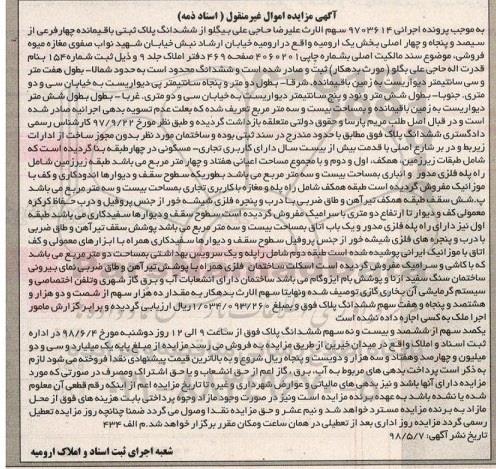 آگهی مزایده اموال غیرمنقول ( اسناد ذمه)
به موجب پرونده اجرائی ۹۷۰۳۶۱۴ سهم الارث علیرضا حاجی علی بیگلو از ششدانگ پلاک ثبتی باقیمانده چهار فرعی از
سیصد و پنجاه و چهار اصلی بخش یک ارومیه واقع در ارومیه خیابان ارشاد نبش خیابان شهید نواب صفوی مغازه میوه
فروشی، موضوع سند مالکیت اصلی بشماره چاپی ۴۰۶۰۲۰۱ صفحه ۴۶۹ دفتر املاک جلد ۹ و ذیل ثبت شماره ۱۵۴۰ بنام
قدرت اله حاجی علی بگلو (مورث بدهکار) ثبت و صادر شده است و ششدانگ محدود است به حدود شمالا- بطول هفت متر
و سی سانتیمتر دیواریست به زمین باقیمانده. شرقا- بطول دو متر و پنجاه سانتیمتر پی دیواریست به خیابان سی و دو
متری. جنوبا- بطول شش متر و نود و پنج سانتیمتر دیواریست به خیابان سی و دو متری. غربا- بطول بطول شش متر
دیواریست به زمین باقیمانده و بمساحت بیست و سه متر مربع تعریف شده که بعلت عدم تسویه بدهی اجرائیه صادر شده
است و در قبال اصل طلب مریم پارسا و حقوق دولتی متعلقه بازداشت گردیده و طبق نظر مورخ ۹۷/۹/۲۲ کارشناس رسمی
دادگستری ششدانگ پلاک فوق مطابق با حدود مندرج در سند ثبتی بوده و ساختمان مورد نظر بدون مجوز ساخت از ادارات
زیربط و در بر شارع اصلی با قدمت بیش از بیست سال دارای کاربری تجاری- مسکونی در چهار طبقه بنا گردیده است که
شامل طبقات زیرزمین همکف، اول و دوم و با مجموع مساحت اعیانی هفتاد و چهار متر مربع می باشد طبقه زیرزمین شامل
راه پله فلزی مدور و انباری بمساحت بیست و سه متر مربع می باشد بطوریکه سطوح سقف و دیوارها اندودکاری و کف با
موزائیک مفروش گردیده است طبقه همکف شامل راه پله و مغازه با کاربری تجاری بمساحت بیست و سه متر مربع می باشد
پوشش سقف طبقه همکف تیرآهن و طاق ضربی با درب و پنجره فلزی شیشه خور از جنس پروفیل و درب حفاظ کرکره
معمولی کف و دیوار تا ارتفاع دو متری با سرامیک مفروش گردیده است سطوح سقف و دیوارها سفیدکاری می باشد طبقه
اول نیز دارای راه پله فلزی مدور و یک باب اتاق بمساحت بیست و سه متر مربع می باشد پوشش سقف تیرآهن و طاق ضربی
با درب و پنجره های فلزی شیشه خور از جنس پروفیل سطوح سقف و دیوارها سفیدکاری همراه با ابزارهای معمولی و کف
اتاق با موزائیک ایرانی پوشیده شده است طبقه دوم شامل راپله و یک سرویس بهداشتی بمساحت دو متر مربع می باشد
که با کاشی و سرامیک مفروش گردیده است اسکلت ساختمان فلزی همراه با پوشش تیرآهن و طاق ضربی نمای بیرونی
ساختمان سنگ سفید ازنا و پوشش بام ایزوگام می باشد ساختمان دارای انشعابات آب و برق گاز شهری و تلفن اختصاصی و
سیستم گرمایشی آن بخاری گازی توصیف شده و نهایتا سهم الارث بدهکار به مقدار ده هزار سهم از شصت و دو هزار و
هشتصد و پنجاه و هفت سهم ششدانگ پلاک فوق و بمبلغ ۱/۰۳۴/۰۹۳/۲۶۰ریال ارزیابی گردیده و برابر گزارش مامور
اجرا ملک به کسی اجاره داده نشده است
یکصد سهم از ششصد و بیست و نه سهم ششدانگ پلاک فوق از ساعت ۹ الی ۱۲ روز دوشنبه مورخ ۹۸/۶/۴ در اداره
ثبت اسناد و املاک واقع در میدان خیبرین از طریق مزایده به فروش می رسد مزایده از مبلغ پایه یک میلیارد و سی و دو
میلیون و چهارصد و هفتاد و سه هزار و دویست و پنجاه ریال شروع و به بالاترین قیمت پیشنهادی نقدا فروخته می شود لازم
به ذکر است پرداخت بدهی های مربوط به آب، برق ، گاز اعم از حق انشعاب و یا حق اشتراک ومصرف در صورتی که مورد
مزایده دارای آنها باشد و نیز بدهی های مالیاتی و عوارض شهرداری و غیره تا تاریخ مزایده اعم از اینکه رقم قطعی آن معلوم
شده یا نشده باشد به عهده برنده مزایده است ونیز در صورت وجود مازاد وجوه پرداختی بابت هزینه های فوق از محل
مازاد به برنده مزایده مسترد خواهد شد و نیم عشر و حق مزایده نقدا وصول می گردد ضمنا چنانچه روز مزایده تعطیل
رسمی گردد مزایده روز اداری بعد از تعطیلی در همان ساعت ومکان مقرر برگزار خواهد شد.م الف ۴۳۴
تاریخ نشر آگهی: ۹۸/۵/۷
شعبه اجرای ثبت اسناد و املاک ارومیه